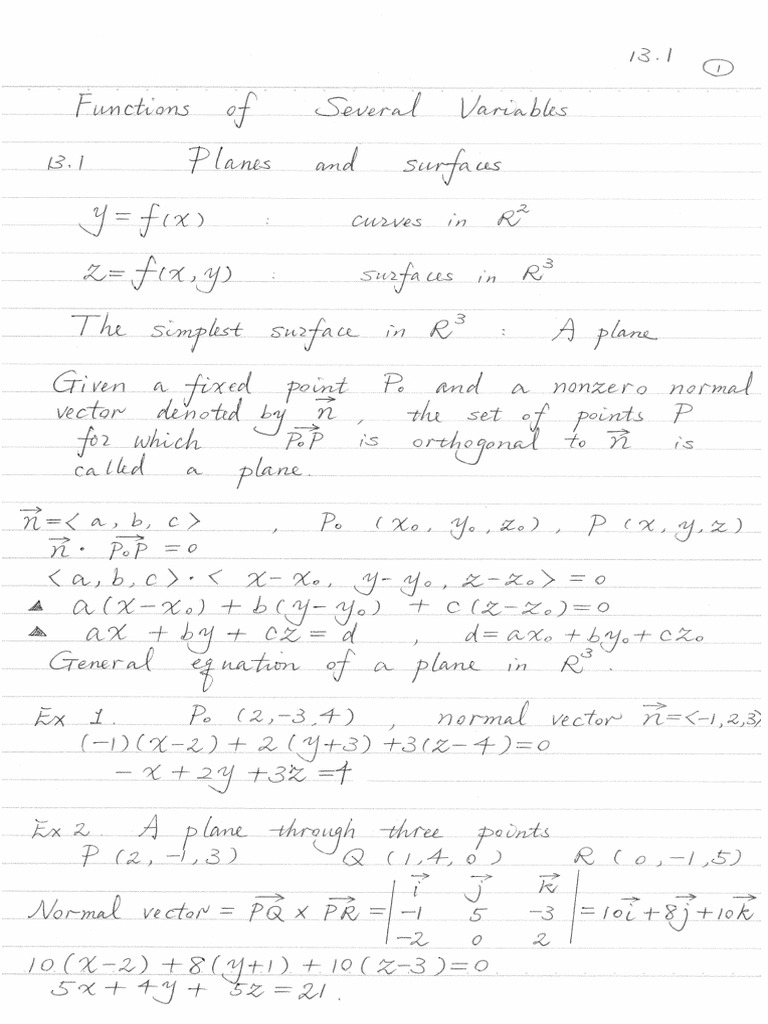 13.1 ①
Functions of Several Variables
13.1 Planes and surfaces
y = f(x) : curves in R²
z = f(x, y) : surfaces in R³
The simplest surface in R³ : A plane
Given a fixed point P₀ and a nonzero normal
vector denoted by n⃗, the set of points P
for which P₀P⃗ is orthogonal to n⃗ is
called a plane.
n⃗ = < a, b, c > , P₀ (x₀, y₀, z₀), P (x, y, z)
n⃗ · P₀P⃗ = 0
< a, b, c > · < x - x₀, y - y₀, z - z₀ > = 0
▲ a(x - x₀) + b(y - y₀) + c(z - z₀) = 0
▲ ax + by + cz = d , d = ax₀ + by₀ + cz₀
General equation of a plane in R³.
Ex 1. P₀ (2, -3, 4) , normal vector n⃗ = <-1, 2, 3>
(-1)(x - 2) + 2(y + 3) + 3(z - 4) = 0
- x + 2y + 3z = 4
Ex 2. A plane through three points
P (2, -1, 3) Q (1, 4, 0) R (0, -1, 5)
Normal vector = PQ⃗ × PR⃗ = | i⃗ j⃗ k⃗ | = 10i⃗ + 8j⃗ + 10k⃗
-1 5 -3
-2 0 2
10(x - 2) + 8(y + 1) + 10(z - 3) = 0
5x + 4y + 5z = 21.